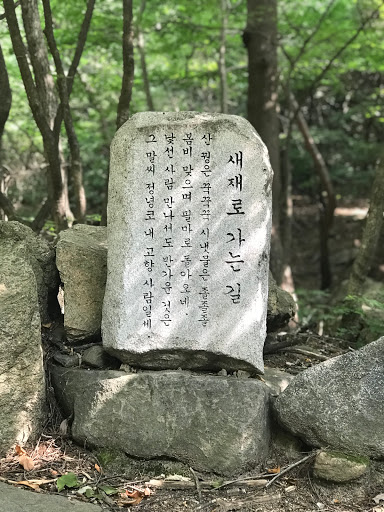 새재로 가는 길
산 꿩은 꺽꺽꺽 시냇물은 졸졸졸
봄비 맞으며 필마로 돌아오네.
낯선 사람 만나서도 반가운 것은
그 말씨 정녕코 내 고향 사람일세.